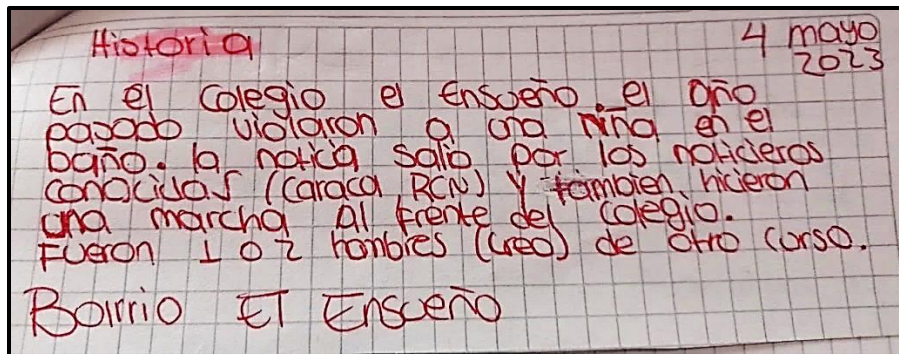 Historia
4 mayo
2023
En el Colegio el Ensoeño. el año
pasado violaron a una niña en el
baño. la noticia salio por los noticieros
conocidos (Caraca RCN) Y tambien hicieron
una marcha Al frente del colegio.
Fueron 1 o 2 hombres (creo) de otro curso.
Barrio El Ensueño